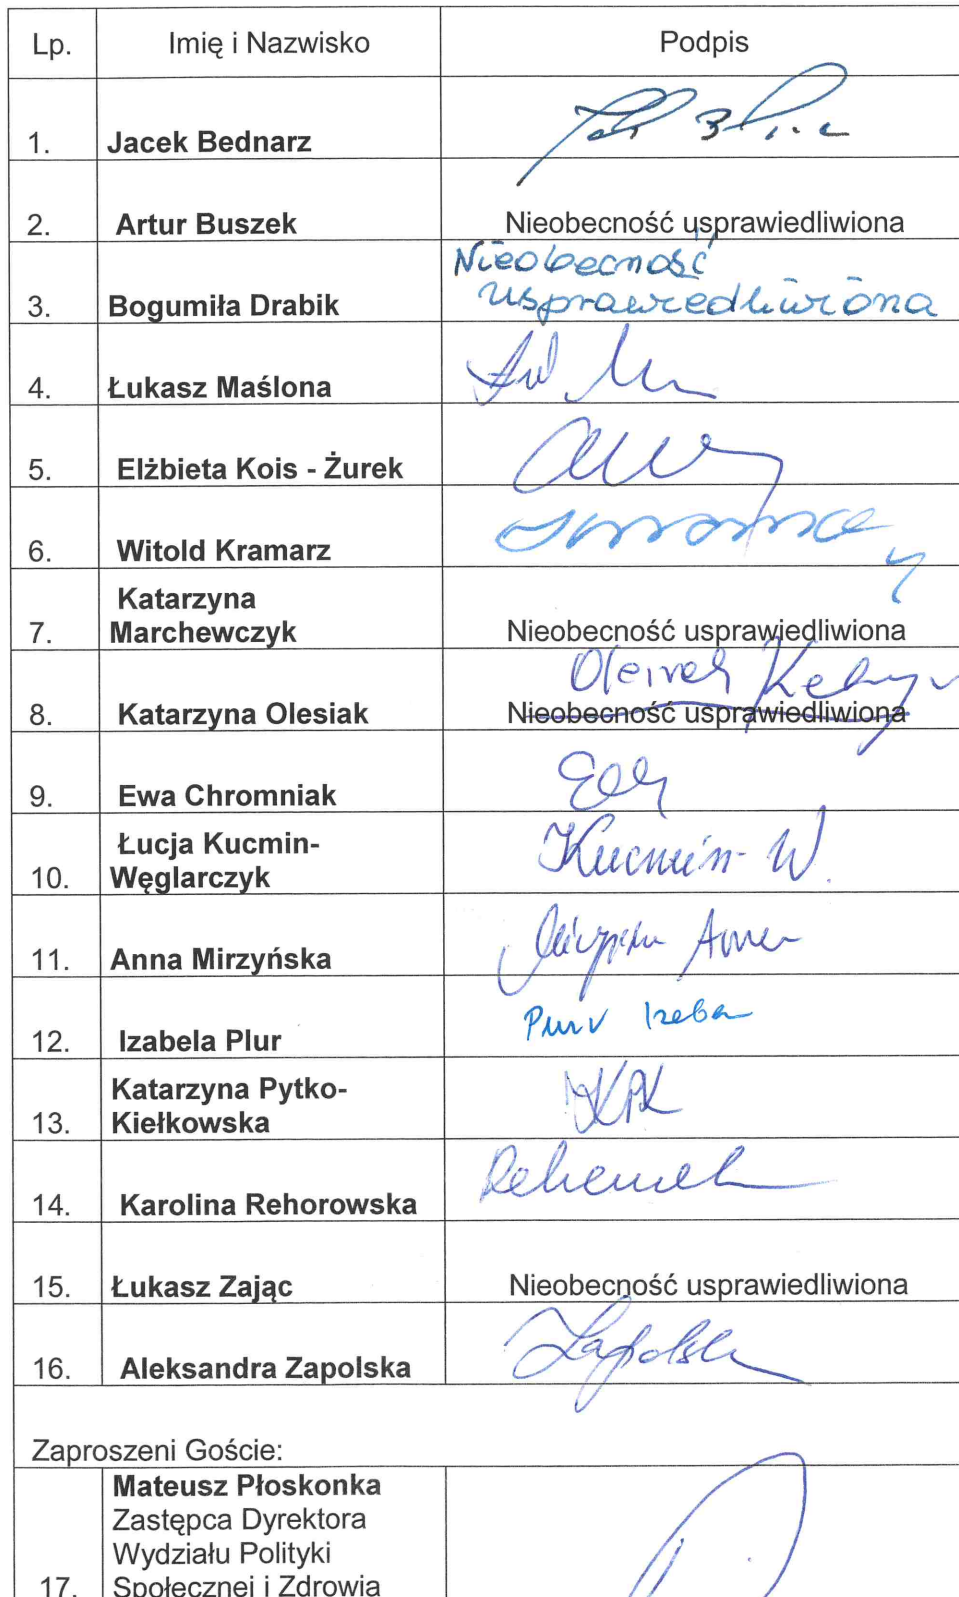 Lp. Imię i Nazwisko Podpis
1. Jacek Bednarz
2. Artur Buszek Nieobecność usprawiedliwiona
Nieobecność
usprawiedliwiona
3. Bogumiła Drabik
4. Łukasz Maślona
5. Elżbieta Kois - Żurek
6. Witold Kramarz
Katarzyna
7. Marchewczyk Nieobecność usprawiedliwiona
8. Katarzyna Olesiak Nieobecność usprawiedliwiona
9. Ewa Chromniak
Łucja Kucmin- Kucmin-W.
10. Węglarczyk
11. Anna Mirzyńska
12. Izabela Plur
Katarzyna Pytko- KPK
13. Kiełkowska
14. Karolina Rehorowska
15. Łukasz Zając Nieobecność usprawiedliwiona
16. Aleksandra Zapolska
Zaproszeni Goście:
Mateusz Płoskonka
Zastępca Dyrektora
Wydziału Polityki
17. Społecznej i Zdrowia